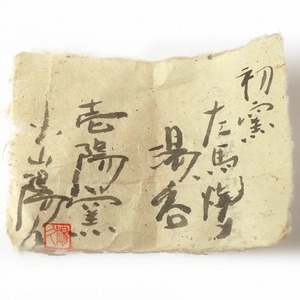 初窯
左馬
湯呑
壱陽窯
小山陽